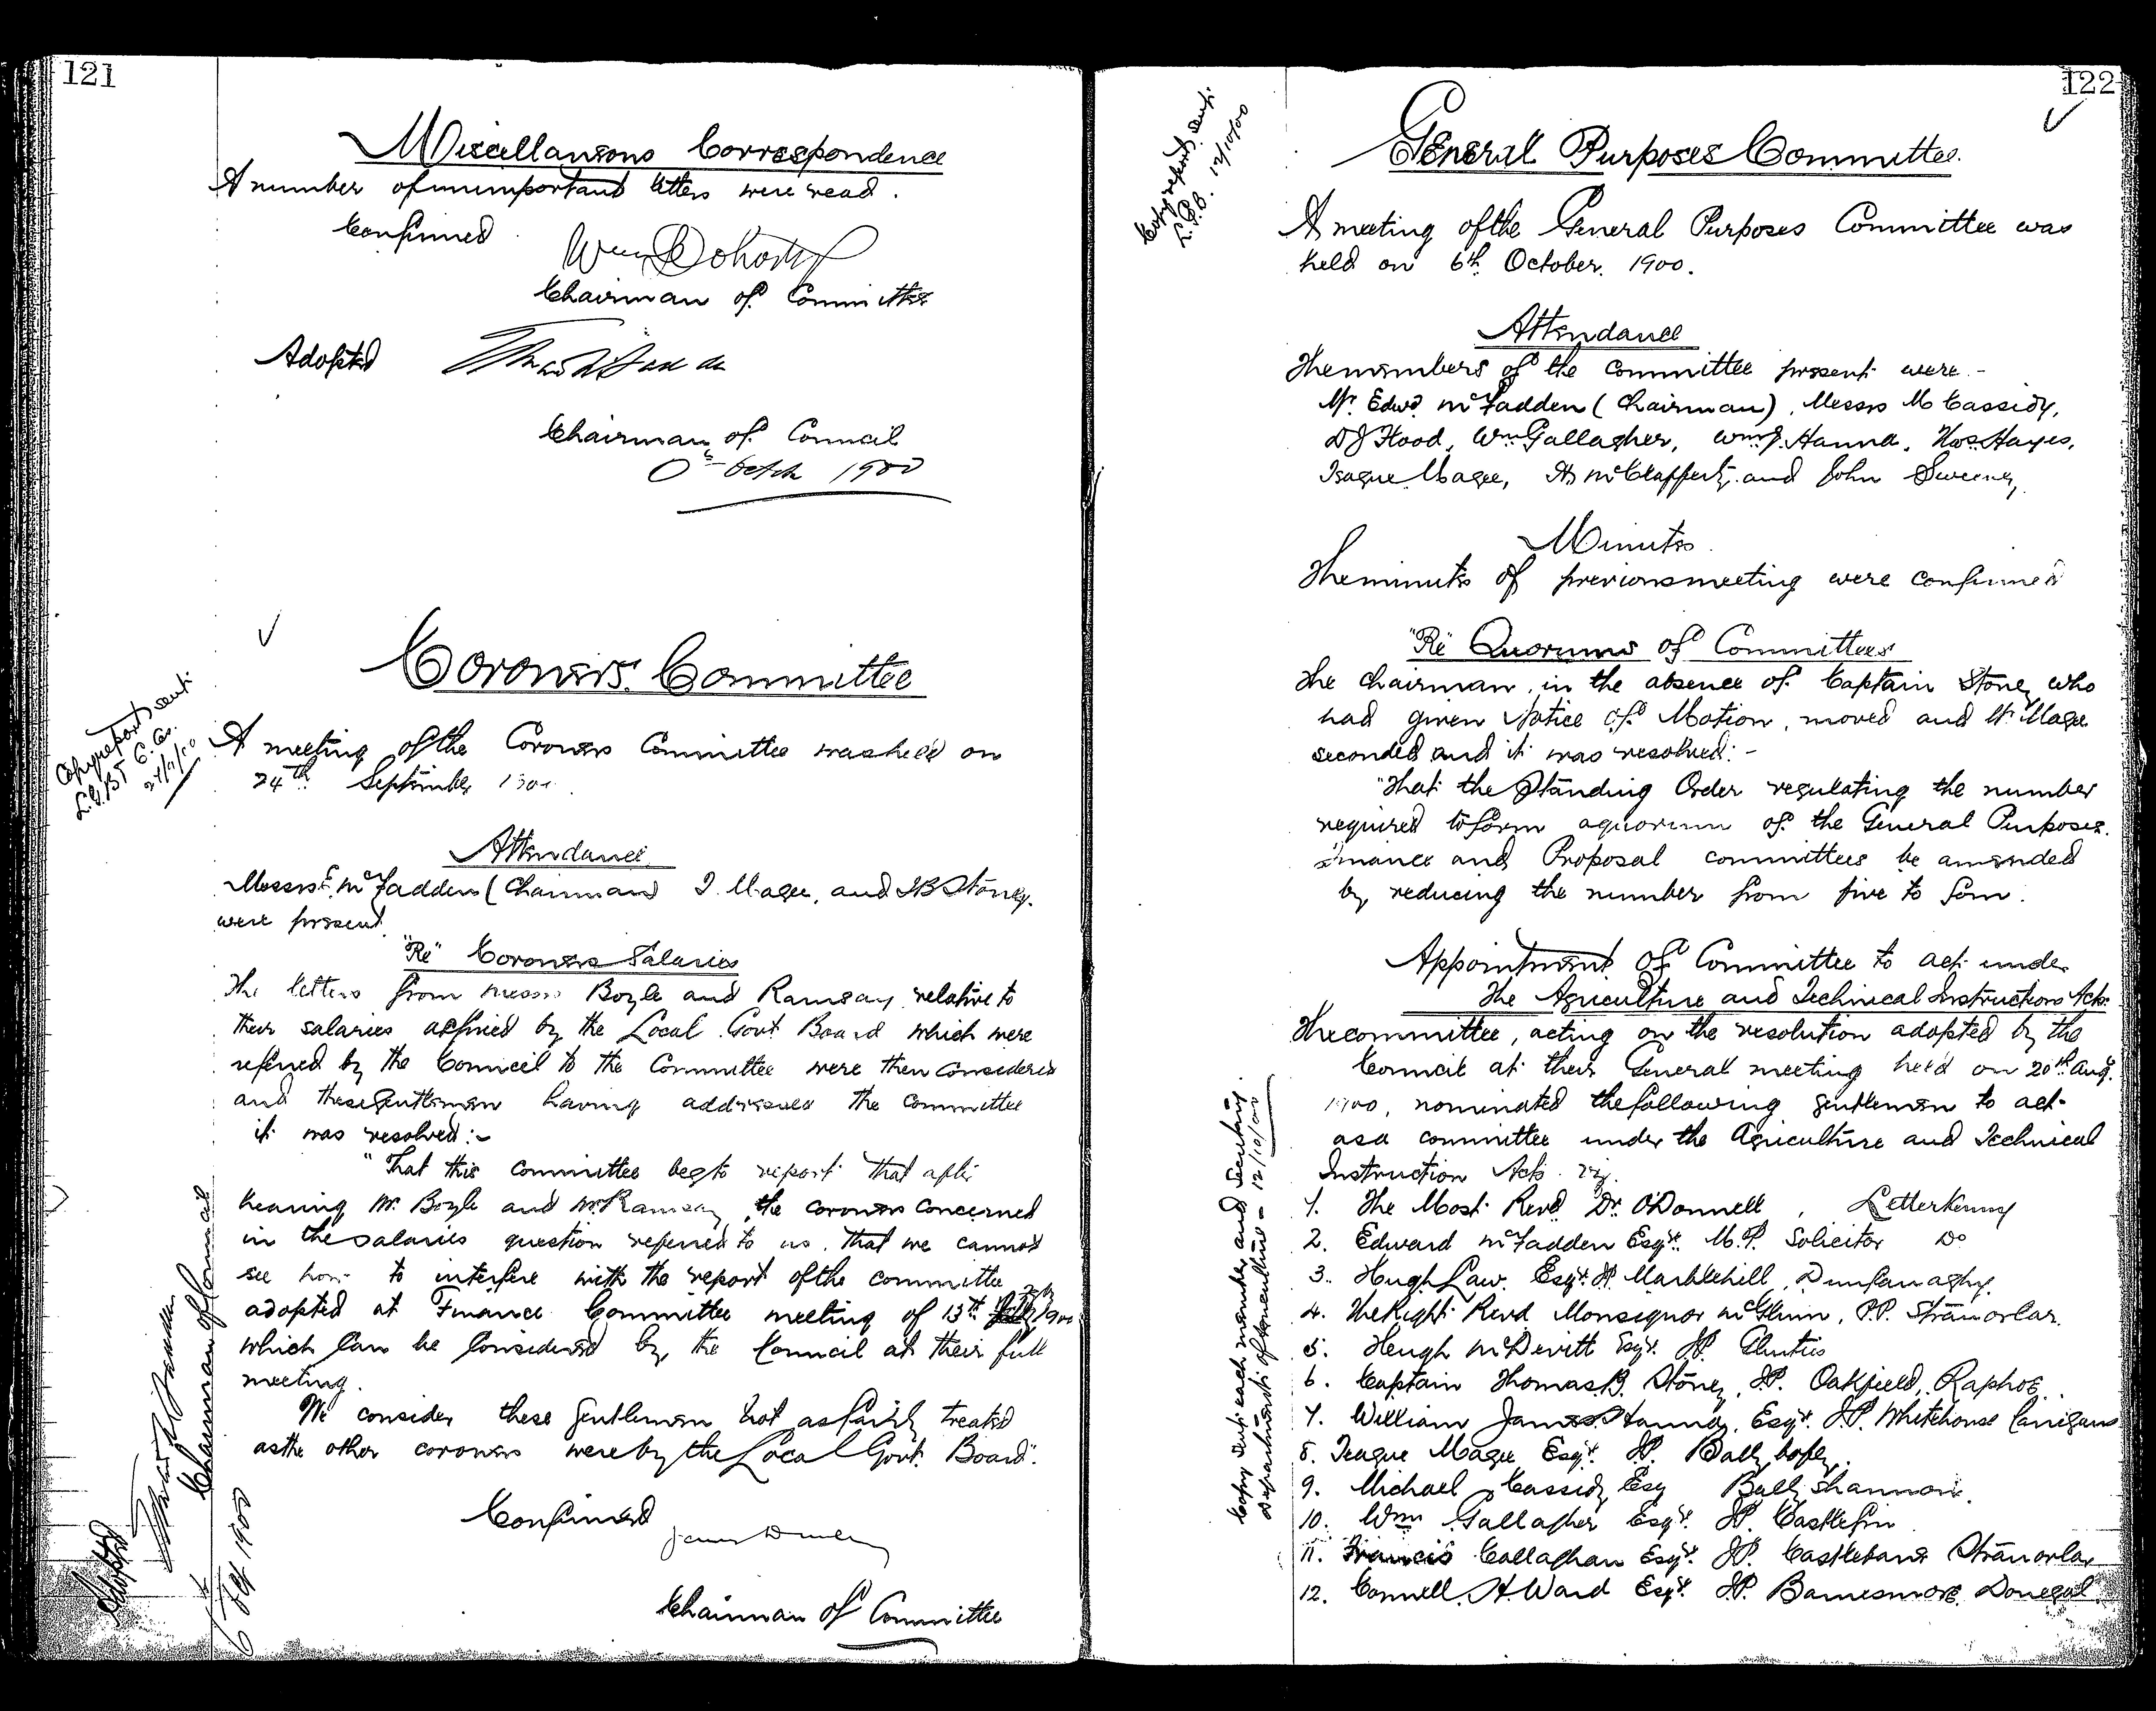 121
Miscellaneous Correspondence
A number of unimportant letters were read.
Confirmed
Wm Doherty
Chairman of Committee
Adopted
Chairman of Council
1900
Coroners Committee
Copy report sent
A meeting of the Coroners Committee was held on
24th September
Attendance
Messrs E. McFadden (Chairman) I. Magee, and TB Stoney.
were present
"Re" Coroners Salaries
The letters from Messrs Boyle and Ramsay relative to
their salaries affixed by the Local Govt Board which were
referred by the Council to the Committee were then considered
and these Gentlemen having addressed the Committee
it was resolved:-
"That this Committee begs to report that after
hearing Mr. Boyle and Mr Ramsay, the coroners concerned
in the salaries question referred to us, that we cannot
see how to interfere with the report of the committee
adopted at Finance Committee meeting of 13th
which can be considered by the Council at their full
meeting.
We consider these Gentlemen not as fairly treated
as the other coroners were by the Local Govt. Board".
Confirmed
Chairman of Committee
Adopted
Chairman of Council
1900
122
General Purposes Committee.
Copy report sent
L.G.B. 12/10/00
A meeting of the General Purposes Committee was
held on 6th October. 1900.
Attendance
The members of the Committee present were:-
Mr. Edwd. McFadden (Chairman), Messrs M Cassidy,
D J Flood, Wm Gallagher, Wm J. Hanna, Thos. Hayes,
Teague Magee, McClafferty and John Sweeney
Minutes
The minutes of previous meeting were confirmed
"Re" Quorums of Committees
The Chairman, in the absence of Captain Stoney who
had given Notice of Motion, moved and Mr Magee
seconded and it was resolved:-
"That the Standing Order regulating the number
required to form a quorum of the General Purposes.
Finance and Proposal committees be amended
by reducing the number from five to four.
Appointment of Committee to act under
the Agriculture and Technical Instructions Acts.
The committee, acting on the resolution adopted by the
Council at their General meeting held on 20th Aug.
1900, nominated the following gentlemen to act
as a committee under the Agriculture and Technical
Instruction Acts viz.
1. The Most Revd Dr. O'Donnell, Letterkenny
2. Edward McFadden Esqr. M.P. Solicitor Do
3. Hugh Law. Esqr. JP Marblehill, Dunfanaghy.
4. The Right Revd Monsignor McGlynn, P.P. Stranorlar.
5. Hugh McDevitt Esqr. JP. Glenties
6. Captain Thomas B. Stoney, JP. Oakfield, Raphoe.
7. William James Hanna, Esqr. JP. Whitehouse Carrigans
8. Teague Magee Esqr. JP. Ballybofey.
9. Michael Cassidy Esq Ballyshannon.
10. Wm Gallagher Esqr. JP. Castlefin
11. Francis Callaghan Esqr. JP. Castlebane Stranorlar
12. Connell H. Ward Esqr. JP. Barnesmore. Donegal.
Copy sent each member and Secretary.
Department of Agriculture - 12/10/00